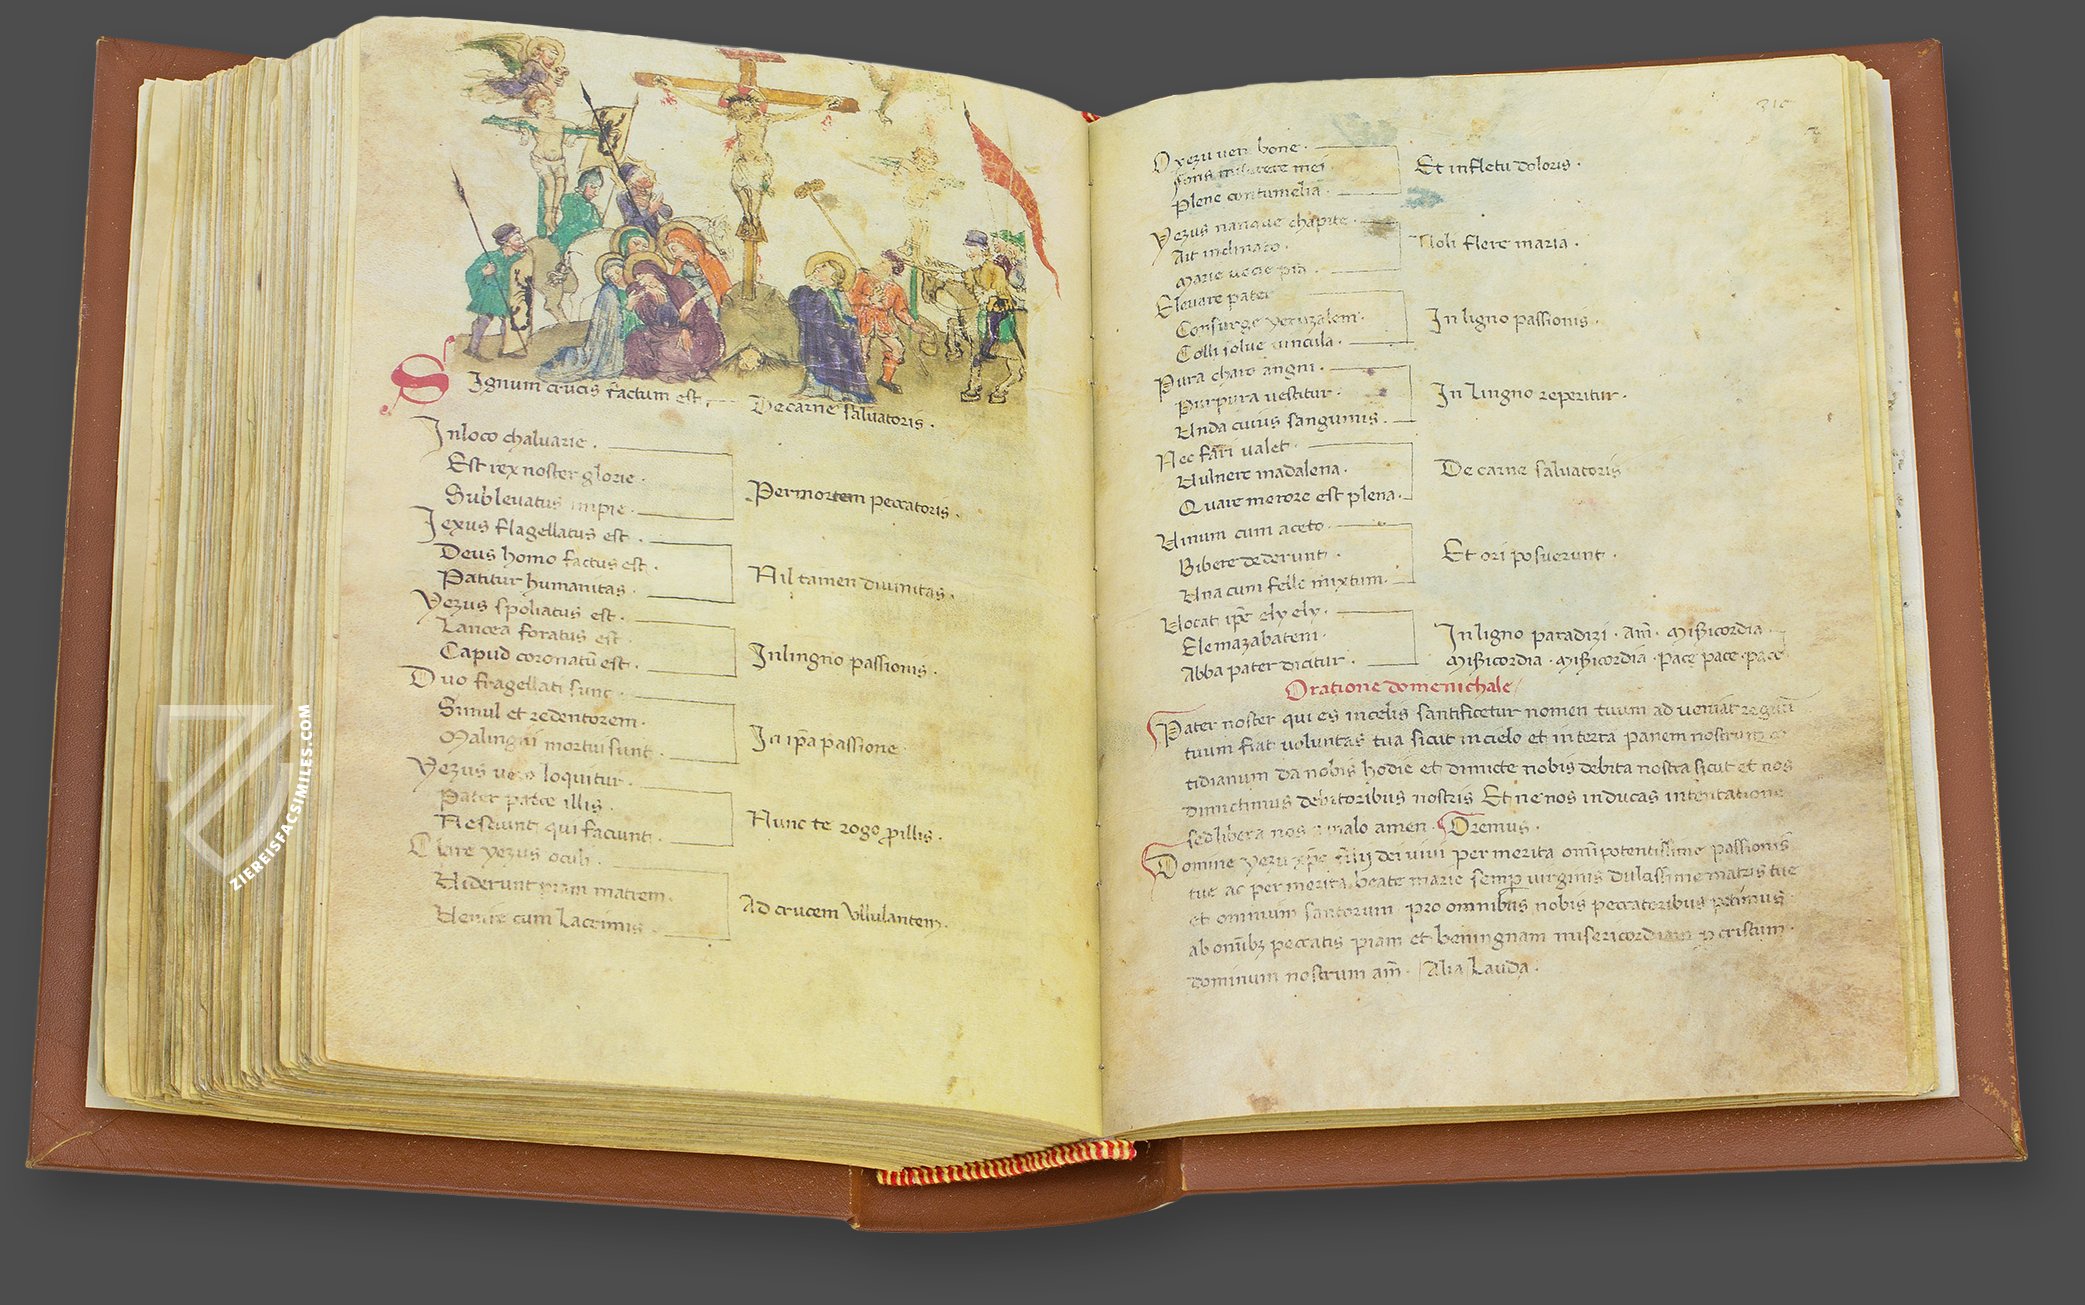 Signum crucis factum est, De carne salvatoris.
In loco chalvarie.
Est rex noster glorie.
Sublevatus impie.
Per mortem peccatoris.
Jexus flagellatus est.
Deus homo factus est.
Patitur humanitas.
Nil tamen divinitas.
Yezus spoliatus est.
Lancea foratus est
Capud coronatū est.
In lingno passionis.
Duo fragellati sunt.
Simul et redentorem.
Malingni mortui sunt.
In ip̄a passione.
Yezus vero loquitur.
Pater parce illis.
Nesciunt qui faciunt.
Nunc te rogo pillis.
Clare yezus oculi.
Viderunt piam matrem.
Venire cum lacrimis.
Ad crucem ullulantem.
315
O yezu bone.
Fons mei
Plene contumelia.
Et in fletu doloris.
Yezus nanque chapite.
Ait inclinato.
Marie pia.
Noli flere maria.
Elevare pater
Consurge yeruzalem.
Colli solve vincula.
In ligno passionis.
Pura charo angni.
Purpura vestitur.
Unda cuius sanguinis.
In lingno reperitur.
Nec fari valet.
Vulnere madalena.
Quare merore est plena.
De carne salvatoris
Vinum cum aceto.
Bibere dederunt.
Una cum felle mixtum.
Et ori posuerunt.
Vocat ip̄e ely ely.
Elemazabatem.
Abba pater dicitur.
In ligno paradizi. am̄. Mis̄icordia.
Mis̄icordia. mis̄icordia. pace pace. pace.
Oratione domenichale
Pater noster qui es in celis santificetur nomen tuum ad veniat regnū
tuum fiat voluntas tua sicut in cielo et in terra panem nostrum co
tidianum da nobis hodie et dimicte nobis debita nostra sicut et nos
dimictimus debitoribus nostris Et ne nos inducas in tentatione
sed libera nos a malo amen. Oremus.
Domine yezu xp̄e filij dei vivi per merita om̄ipotentissime passionis
tue ac per merita beate marie semp̄ virginis dulcissime matris tue
et omnium santorum pro omnibus nobis peccatoribus petimus
ab omībꝫ peccatis piam et beningnam misericordiam p cristum.
dominum nostrum am̄. Alia Lauda.
ZIEREISFACSIMILES.COM